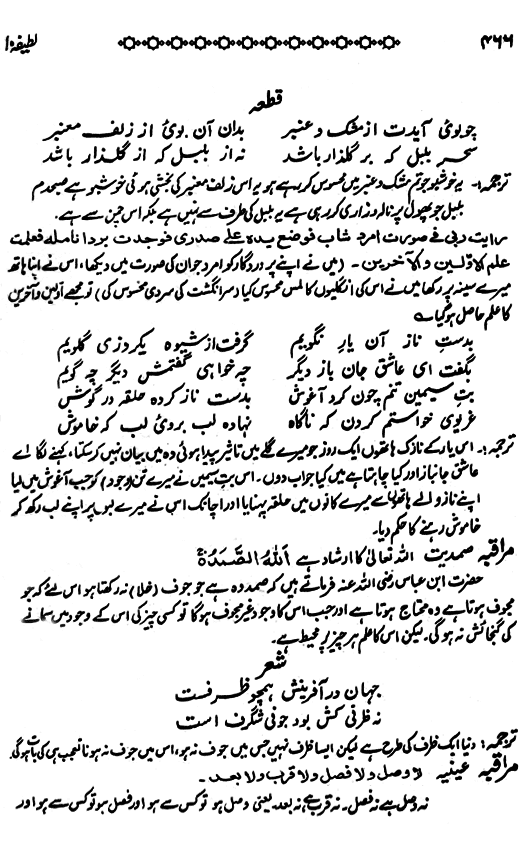 ۴۶۶ لطیفہ ۱
قطعہ
چو بوئ آیدت از مشک و عنبر بدان آن بوئ از زلف معنبر
سحر بلبل کہ بر گلذار باشد نہ از بلبل کہ از گلذار باشد
ترجمہ:۔ یہ خوشبو جو تم مشک و عنبر میں محسوس کر رہے ہو یہ اس زلف معنبر کی بخشی ہوئی خوشبو ہے صبحدم
بلبل جو پھول پر نالہ و زاری کر رہی ہے یہ بلبل کی طرف سے نہیں ہے بلکہ اس چمن سے ہے۔
رایت ربی فی صورت امرد شاب فوضع یدہ علے صدری فوجدت بردا نا ملہ فعلمت
علم الاولین والآخرین ۔ (میں نے اپنے پروردگار کو امرد جوان کی صورت میں دیکھا، اس نے اپنا ہاتھ
میرے سینہ پر رکھا میں نے اس کی انگلیوں کا لمس محسوس کیا (سرانگشت کی سردی محسوس کی) تو مجھے اولین و آخرین
کا علم حاصل ہوگیا۔
بدستِ ناز آن یارِ نگویم گرفت از شیوہ یکروزی گلویم
بگفت ای عاشق جان باز دیگر چہ خواہی گفتمش دیگر چہ گویم
بتِ سیمین تنم چون کرد آغوش بدست ناز کردہ حلقہ در گوش
غریوی خواستم کردن کہ ناگاہ نہادہ لب بروئ لب کہ خاموش
ترجمہ:۔ اس یار کے نازک ہاتھوں ایک روز جو میرے گلے میں تاثیر پیدا ہوئی وہ میں بیان نہیں کرسکتا، کہنے لگا اے
عاشق جانباز اور کیا چاہتا ہے میں کیا جواب دوں۔ اس بت سیمیں نے میرے تن (وجود) کو جب آغوش میں لیا
اپنے ناز والے ہاتھوں سے میرے کانوں میں حلقہ پہنایا اور اچانک اس نے میرے لبوں پر اپنے لب رکھ کر
خاموش رہنے کا حکم دیا۔
مراقبہ صمدیت اللہ تعالیٰ کا ارشاد ہے اَللّٰہُ الصَّمَدُ ۃ
حضرت ابن عباس رضی اللہ عنہ فرماتے ہیں کہ صمد وہ ہے جو جوف (خلا) نہ رکھتا ہو اس لئے کہ جو
مجوف ہوتا ہے وہ محتاج ہوتا ہے اور جب اس کا وجود غیر مجوف ہوگا تو کسی چیز کی اس کے وجود میں سمانے
کی گنجائش نہ ہوگی۔ لیکن اس کا علم ہر چیز پر محیط ہے۔
شعر
جہان در آفرینش ہمچو ظرفست
نہ ظرفی کش بود جوفی شگرف است
ترجمہ: دنیا ایک ظرف کی طرح ہے لیکن ایسا ظرف نہیں جس میں جوف نہ ہو، اس میں جوف نہ ہونا تعجب ہی کی بات ہوگی۔
مراقبہ عینیہ لا وصل ولا فصل ولا قرب ولا بعد۔
نہ وصل ہے نہ فصل۔ نہ قرب ہے نہ بعد یعنی وصل ہو تو کس سے ہو اور فصل ہو تو کس سے ہو اور